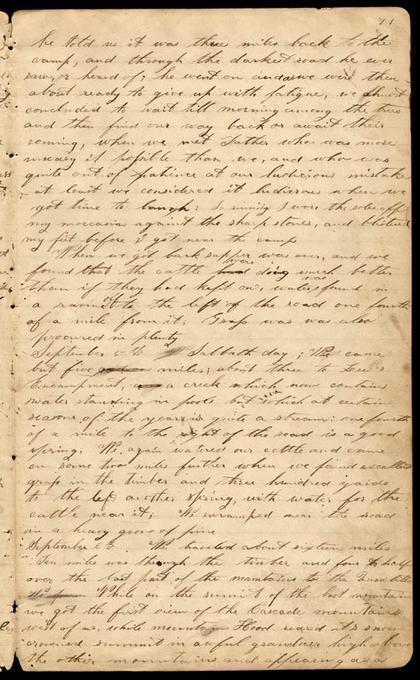 71
he told us it was three miles back to the
camp, and through the darkest road he ever
saw, or heard of; he went on and as we were then
about ready to give up with fatigue, we almost
concluded to wait till morning among the trees
and then find our way back or await their
coming, when we met Father who was more
uneasy if possible than we, and who was
quite out of patience at our ludicrous mistake
at least we considered it ludicrous when we
got time to laugh: In running I wore the soles off
my moccasins against the sharp stones, and blistered
my feet before I got near the camp
When we got back supper was over, and we
found that the cattle were doing much better
than if they had kept on, water found in
a ravine to the left of the road one fourth
of a mile from it, Grass was also
procured in plenty
September Sabbath day; We came
but five miles, about three to Lee's
Encampment, a creek which now contains
water standing in pools but which at certain
seasons of the year is quite a stream: one fourth
of a mile to the right of the road is a good
spring. We again watered our cattle and came
on some two miles further when we found excellent
grass in the timber and three hundred yards
to the left another spring, with water for the
cattle near it, We encamped near the road
in a heavy grove of pine
September We traveled about sixteen miles
Ten miles was through the timber and four & half
over the last part of the mountains to the
While on the summit of the last mountain
we got the first view of the Cascade mountains
west of us, while mount Hood reared its snow
crowned summit in awful grandeur high above
the other mountains and appearing as a